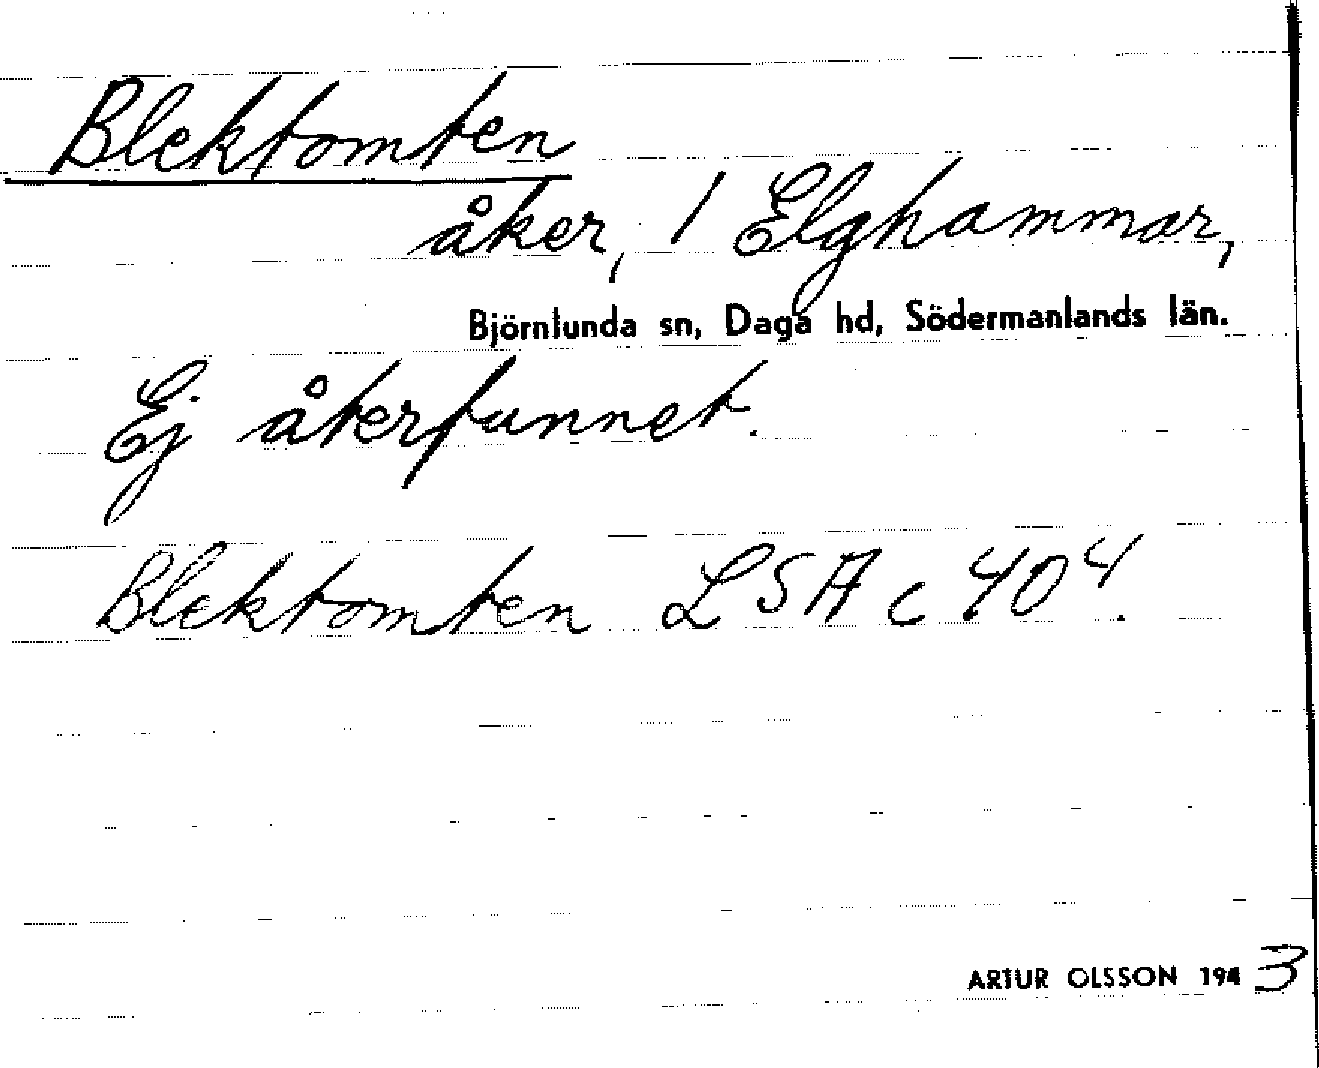 Blektomten
åker, 1 Elghammar,
Björnlunda sn, Daga hd, Södermanlands län.
Ej återfunnet.
Blektomten LSA c 40 4.
ARTUR OLSSON 1943